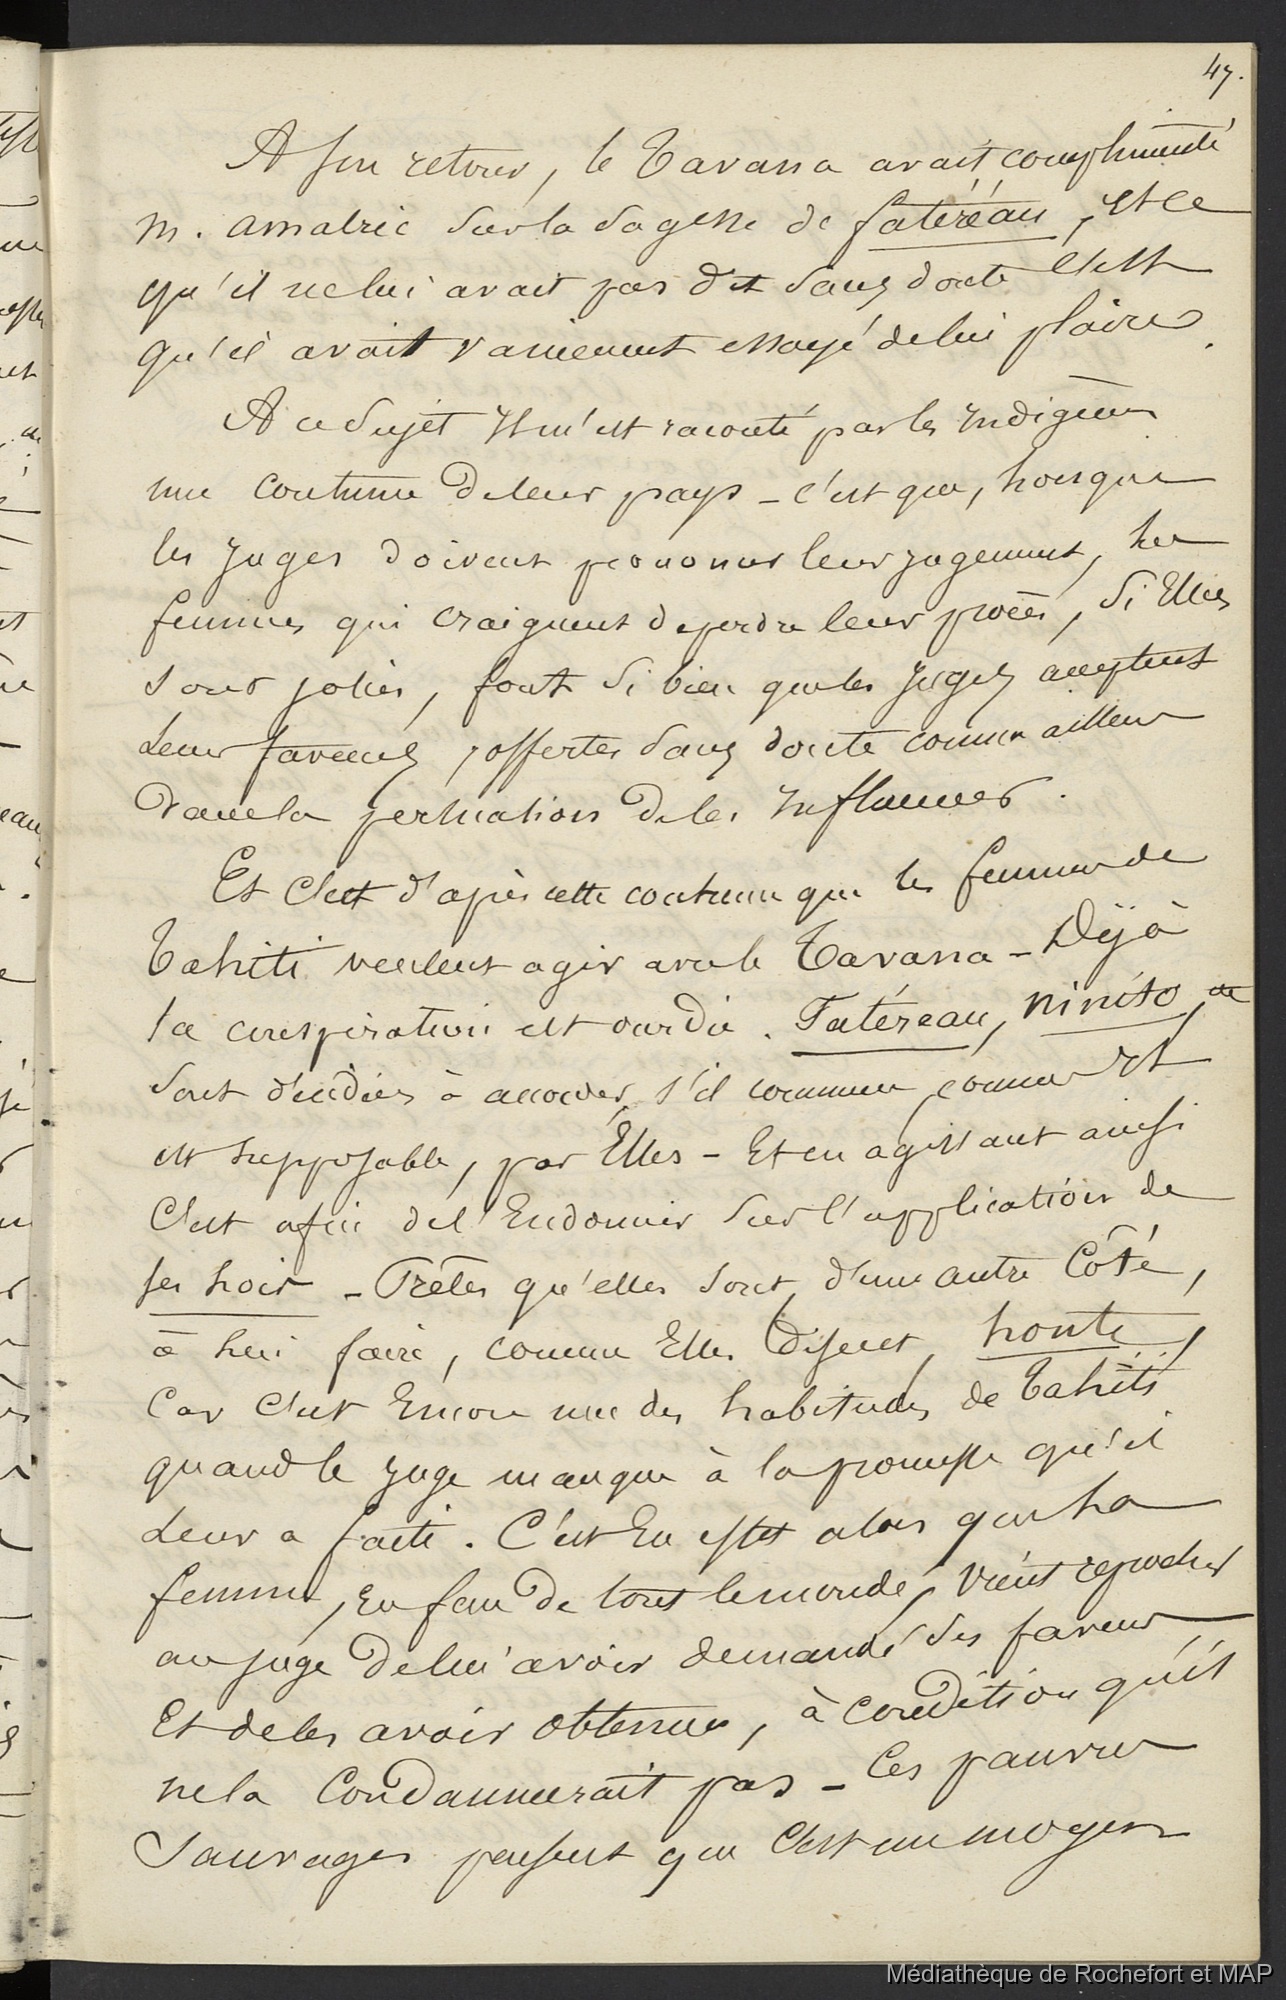 47.
A son retour, le Tavana avait complimenté
m. amalric sur la sagesse de fatéréau, et ce
qu'il ne lui avait pas dit sans doute c'est
qu'il avait vainement essayé de lui plaire.
A ce sujet Il m'est raconté par les Indigènes
une coutume de leur pays - c'est que, lorsque
les Juges doivent prononcer leur jugement, les
femmes qui craignent de perdre leur procès, si Elles
sont jolies, font si bien que les Juges acceptent
leurs faveurs, offertes sans doute comme ailleurs
dans la persuasion de les Influencer.
Et c'est d'après cette coutume que les femmes de
Tahiti veulent agir avec le Tavana - Déjà
la conspiration est ourdie. Fatéreau, ninito, etc
sont décidées à accorder, s'il commence, comme Il
est supposable, par Elles - Et en agissant ainsi
C'est afin de l'Endormir sur l'application de
ses lois - Prêtes qu'elles sont, d'une autre Côté,
à lui faire, comme Elles disent, honte,
Car c'est Encore une des habitudes de Tahiti
quand le Juge manque à la promesse qu'il
leur a faite. C'est En effet alors que la
femme, En face de tout le monde, vient reprocher
au juge de lui avoir demandé ses faveurs
Et de les avoir obtenues, à condition qu'il
ne la Condamnerait pas - Ces pauvres
Sauvages pensent que c'est un moyen
Médiathèque de Rochefort et MAP